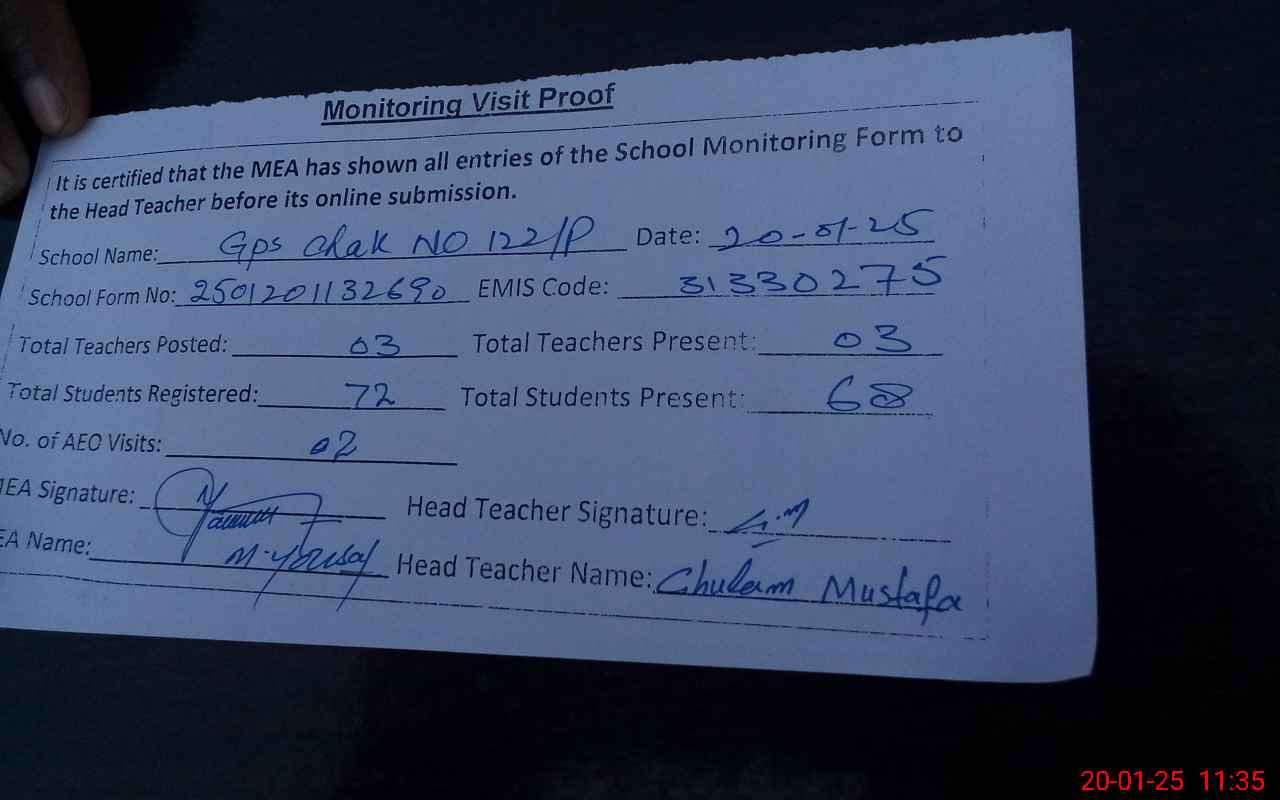 Monitoring Visit Proof
It is certified that the MEA has shown all entries of the School Monitoring Form to
the Head Teacher before its online submission.
School Name: Gps Chak NO 122/P Date: 20-01-25
School Form No: 2501201132690 EMIS Code: 31330275
Total Teachers Posted: 03 Total Teachers Present: 03
Total Students Registered: 72 Total Students Present: 68
No. of AEO Visits: 02
MEA Signature: Head Teacher Signature: G.M
EA Name: M.Yousaf Head Teacher Name: Ghulam Mustafa
20-01-25 11:35